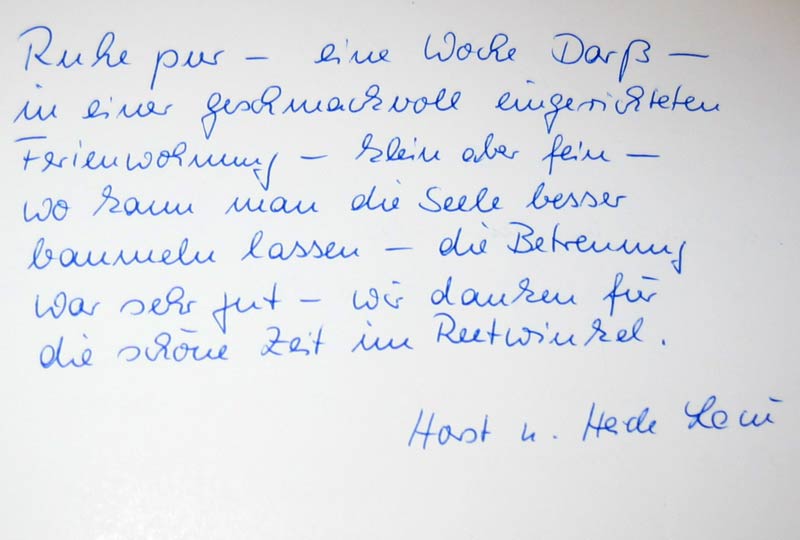 Ruhe pur – eine Woche Darß –
in einer geschmackvoll eingerichteten
Ferienwohnung – klein aber fein –
wo kann man die Seele besser
baumeln lassen – die Betreuung
war sehr gut – wir danken für
die schöne Zeit im Reetwinkel.
Horst u.